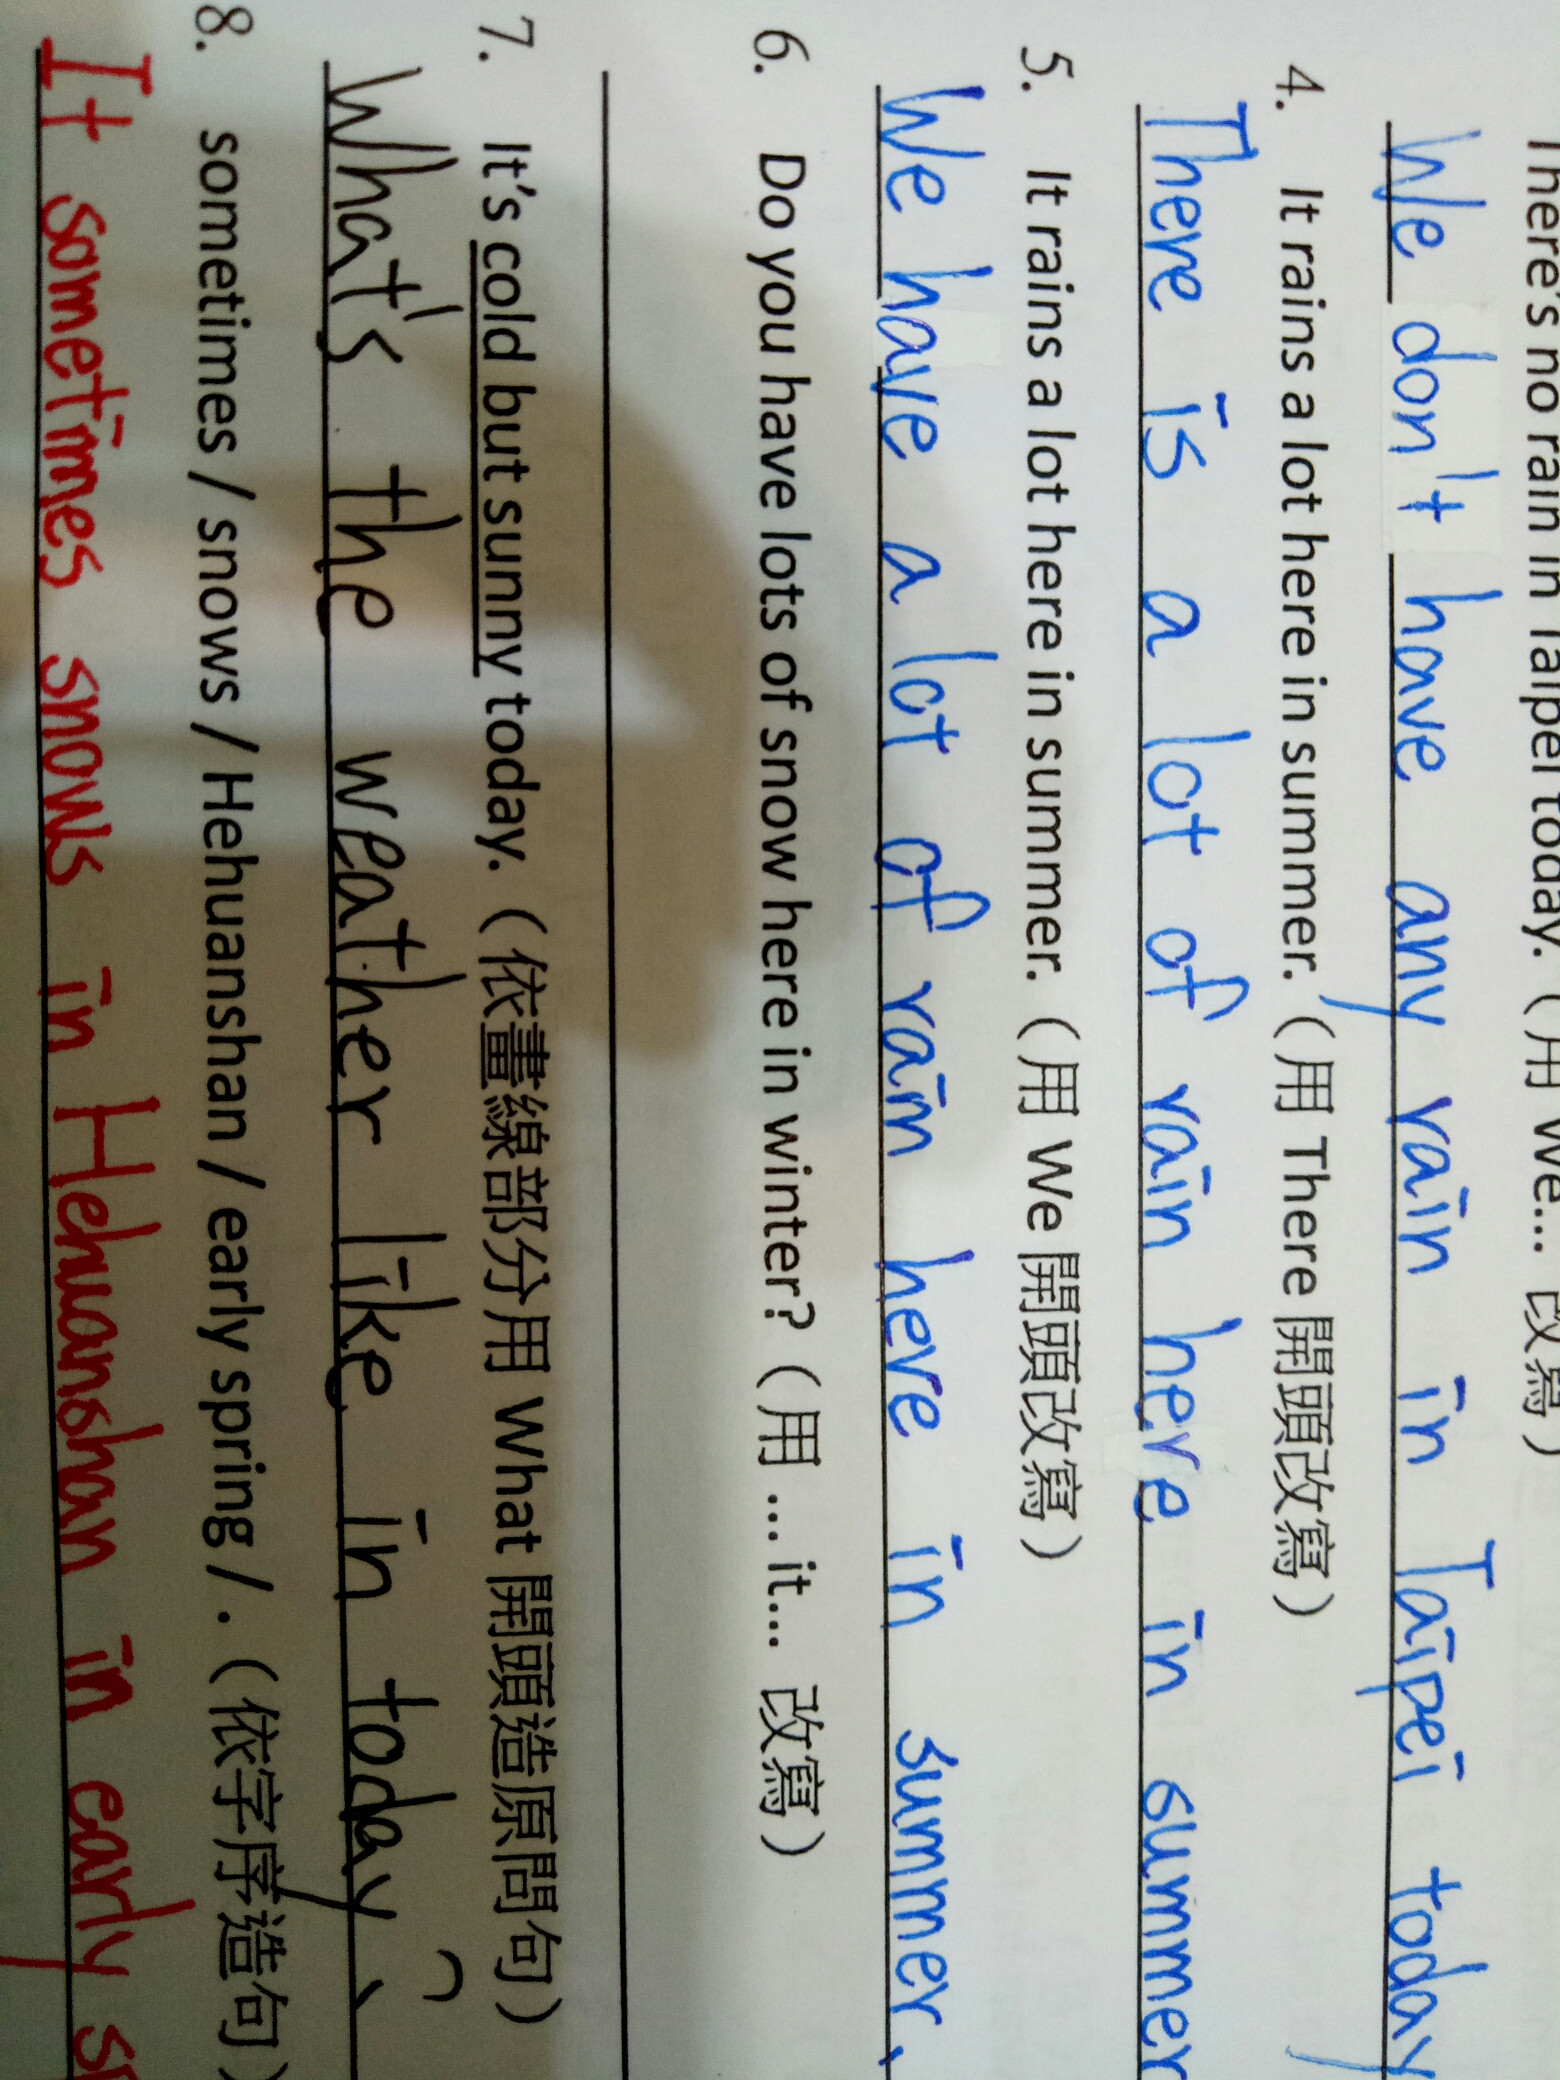 There's no rain in Taipei today.（用 We... 改寫）
We don't have any rain in Taipei today
4. It rains a lot here in summer.（用 There 開頭改寫）
There is a lot of rain here in summer
5. It rains a lot here in summer.（用 We 開頭改寫）
We have a lot of rain here in summer.
6. Do you have lots of snow here in winter?（用 ... it... 改寫）
7. It's cold but sunny today.（依畫線部分用 What 開頭造原問句）
What's the weather like in today?
8. sometimes / snows / Hehuanshan / early spring / .（依字序造句）
It sometimes snows in Hehuanshan in early